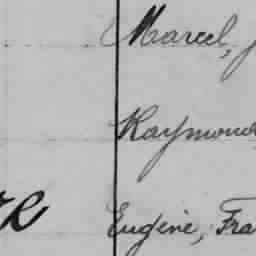 Marcel,
Raymond
Eugène, Fra